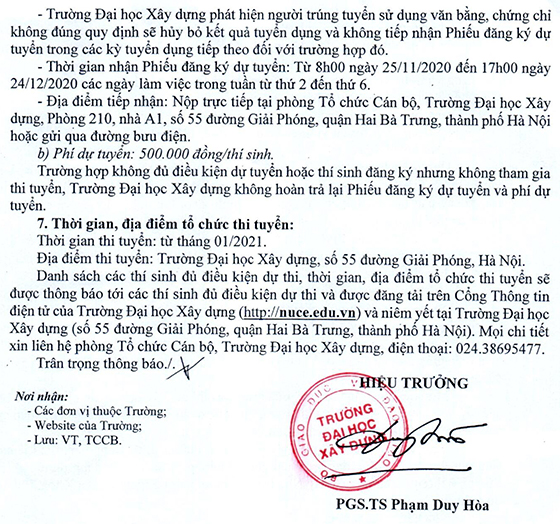 - Trường Đại học Xây dựng phát hiện người trúng tuyển sử dụng văn bằng, chứng chỉ
không đúng quy định sẽ hủy bỏ kết quả tuyển dụng và không tiếp nhận Phiếu đăng ký dự
tuyển trong các kỳ tuyển dụng tiếp theo đối với trường hợp đó.
- Thời gian nhận Phiếu đăng ký dự tuyển: Từ 8h00 ngày 25/11/2020 đến 17h00 ngày
24/12/2020 các ngày làm việc trong tuần từ thứ 2 đến thứ 6.
- Địa điểm tiếp nhận: Nộp trực tiếp tại phòng Tổ chức Cán bộ, Trường Đại học Xây
dựng, Phòng 210, nhà A1, số 55 đường Giải Phóng, quận Hai Bà Trưng, thành phố Hà Nội
hoặc gửi qua đường bưu điện.
b) Phí dự tuyển: 500.000 đồng/thí sinh.
Trường hợp không đủ điều kiện dự tuyển hoặc thí sinh đăng ký nhưng không tham gia
thi tuyển, Trường Đại học Xây dựng không hoàn trả lại Phiếu đăng ký dự tuyển và phí dự
tuyển.
7. Thời gian, địa điểm tổ chức thi tuyển:
Thời gian thi tuyển: từ tháng 01/2021.
Địa điểm thi tuyển: Trường Đại học Xây dựng, số 55 đường Giải Phóng, Hà Nội.
Danh sách các thí sinh đủ điều kiện dự thi, thời gian, địa điểm tổ chức thi tuyển sẽ
được thông báo tới các thí sinh đủ điều kiện dự thi và được đăng tải trên Cổng Thông tin
điện tử của Trường Đại học Xây dựng (http://nuce.edu.vn) và niêm yết tại Trường Đại học
Xây dựng (số 55 đường Giải Phóng, quận Hai Bà Trưng, thành phố Hà Nội). Mọi chi tiết
xin liên hệ phòng Tổ chức Cán bộ, Trường Đại học Xây dựng, điện thoại: 024.38695477.
Trân trọng thông báo./.
HIỆU TRƯỞNG
Nơi nhận:
- Các đơn vị thuộc Trường;
- Website của Trường;
- Lưu: VT, TCCB.
BỘ GIÁO DỤC VÀ ĐÀO TẠO
TRƯỜNG
ĐẠI HỌC
XÂY DỰNG
PGS.TS Phạm Duy Hòa